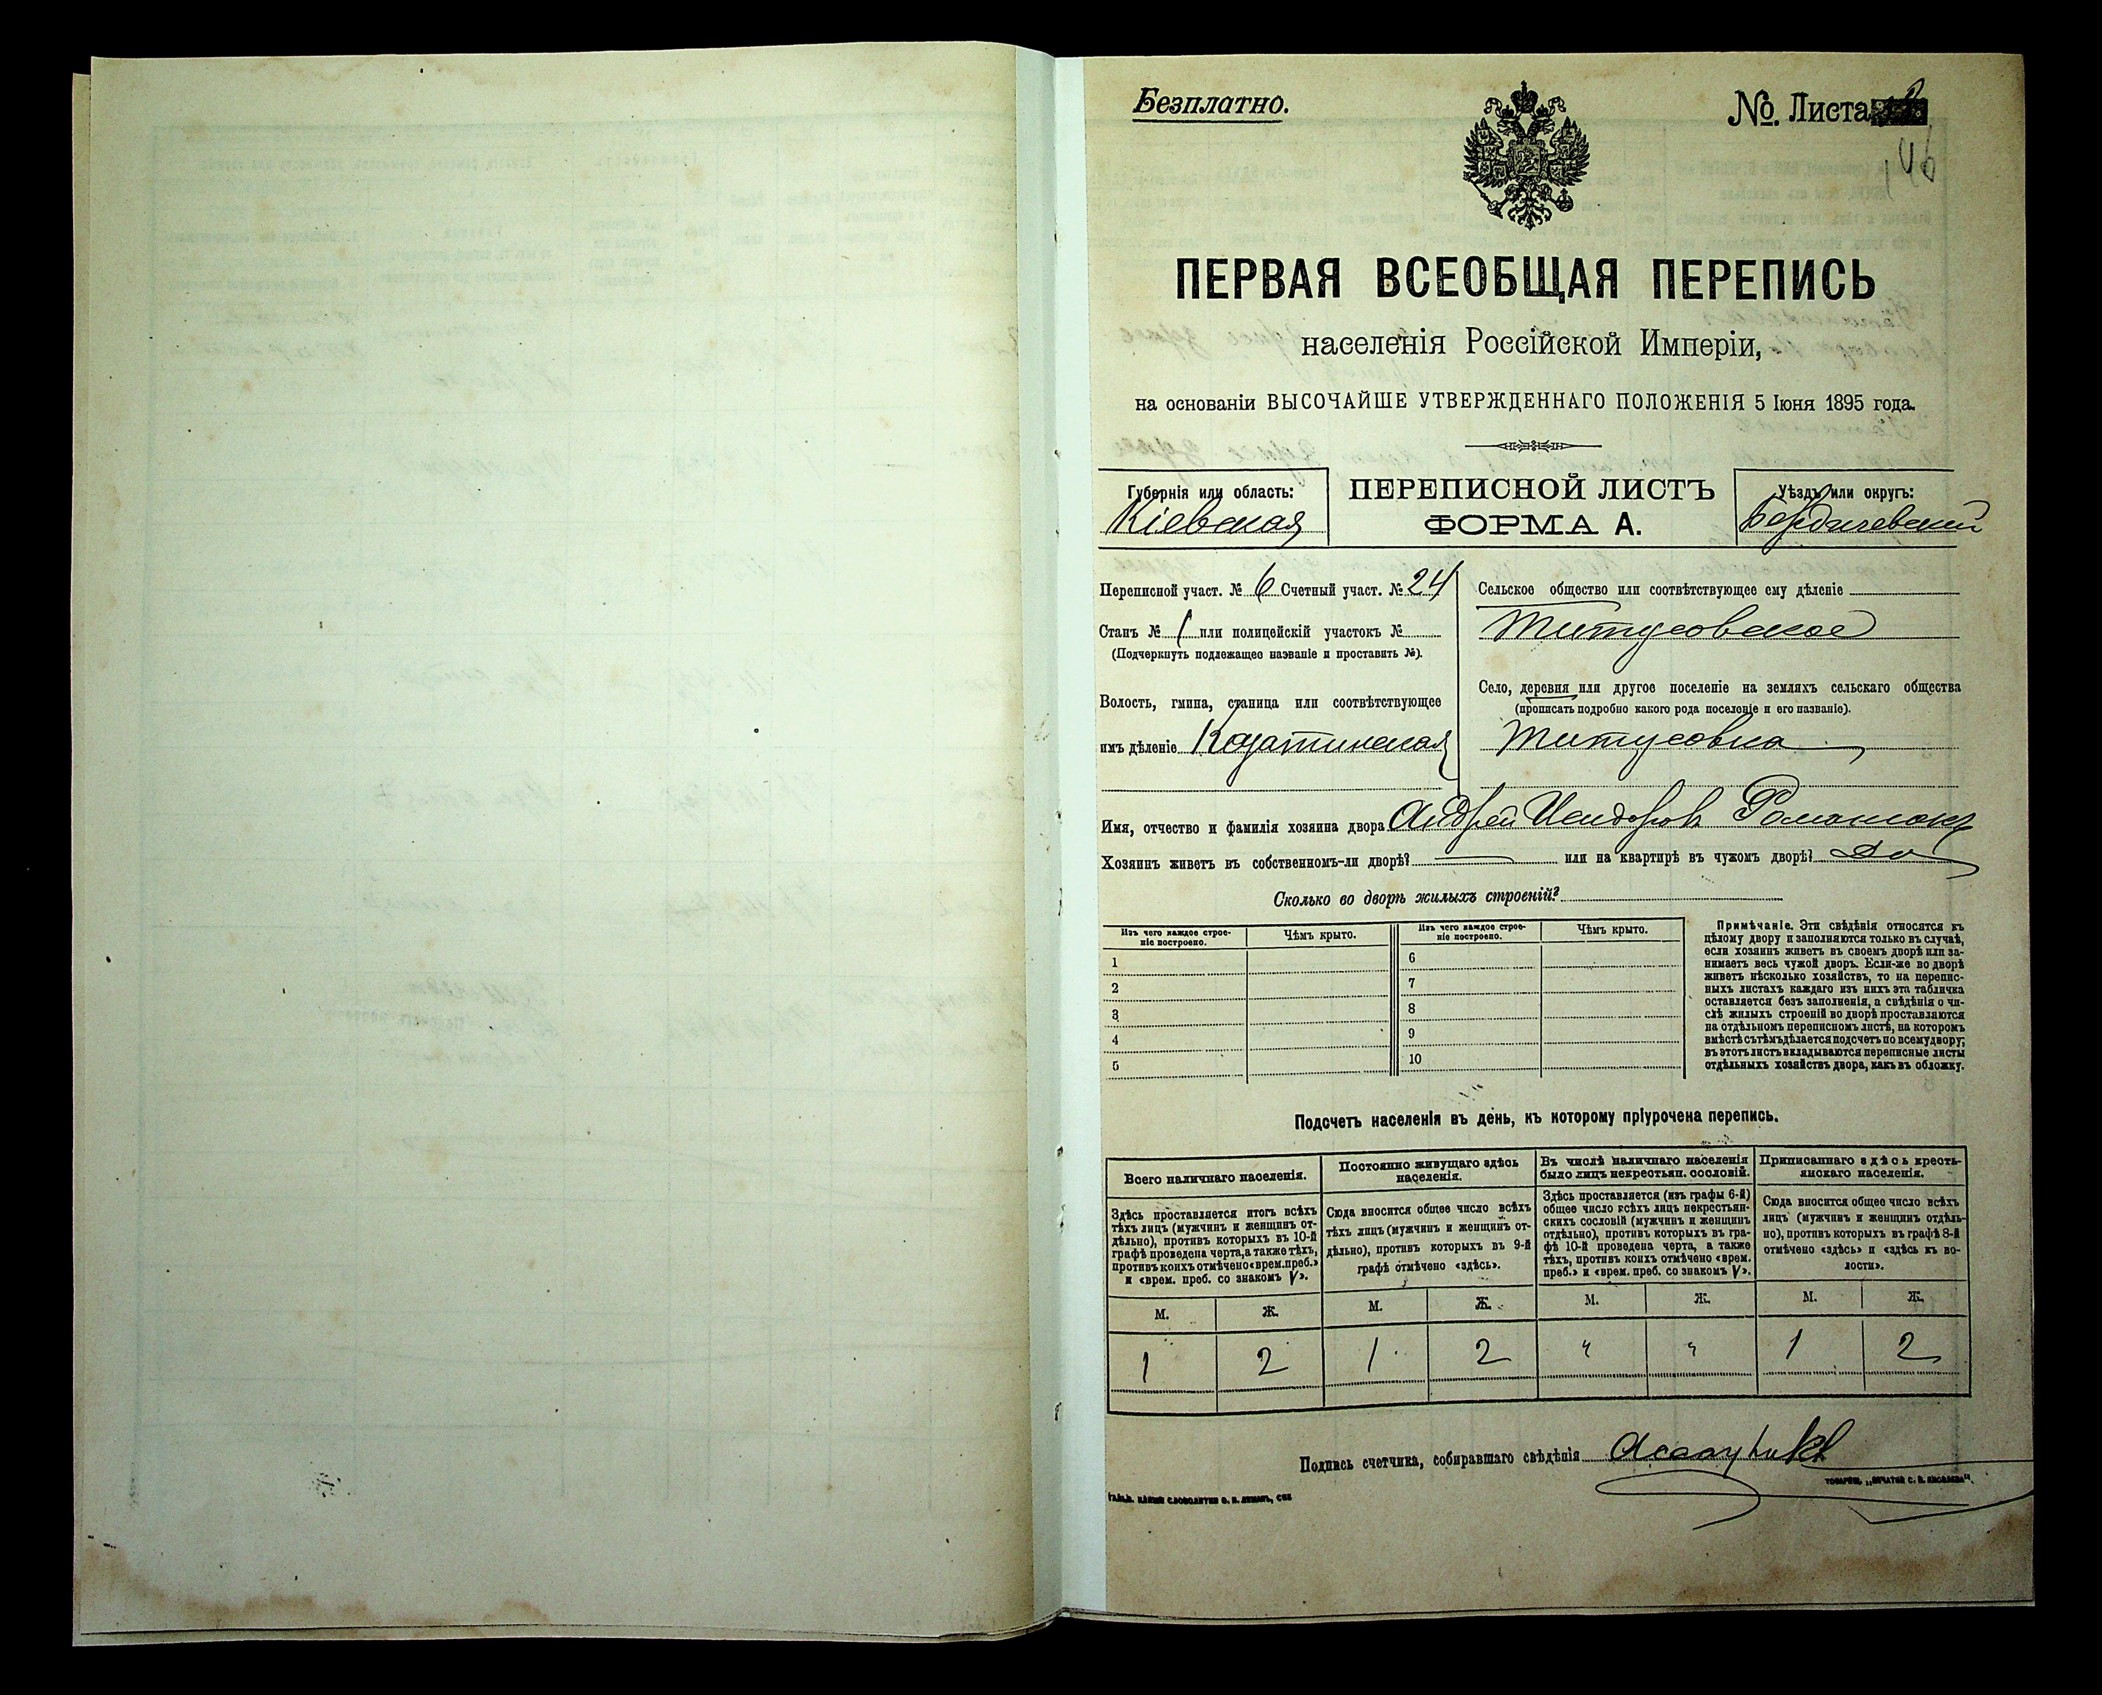 Безплатно.
No. Листа
146
ПЕРВАЯ ВСЕОБЩАЯ ПЕРЕПИСЬ
населенія Россійской Имперіи,
на основаніи ВЫСОЧАЙШЕ УТВЕРЖДЕННАГО ПОЛОЖЕНІЯ 5 Іюня 1895 года.
Губернія или область:
Кіевская
ПЕРЕПИСНОЙ ЛИСТЪ
ФОРМА А.
Уѣздъ или округъ:
Бердичевский
Переписной участ. № 6 Счетный участ. № 24
Станъ № 1 или полицейскій участокъ №
(Подчеркнуть подлежащее названіе и проставить №).
Волость, гмина, станица или соотвѣтствующее
имъ дѣленіе Козатинская
Сельское общество или соотвѣтствующее ему дѣленіе
Титусовское
Село, деревня или другое поселеніе на земляхъ сельскаго общества
(прописать подробно какого рода поселеніе и его названіе).
Титусовка
Имя, отчество и фамилія хозяина двора Андрей Исидоровъ Романюкъ
Хозяинъ живетъ въ собственномъ-ли дворѣ? или на квартирѣ въ чужомъ дворѣ? Да
Сколько во дворѣ жилыхъ строеній?
Изъ чего каждое строе-
ніе построено.
Чѣмъ крыто.
1
2
3
4
5
Изъ чего каждое строе-
ніе построено.
Чѣмъ крыто.
6
7
8
9
10
Примѣчаніе. Эти свѣдѣнія относятся къ
цѣлому двору и заполняются только въ случаѣ,
если хозяинъ живетъ въ своемъ дворѣ или за-
нимаетъ весь чужой дворъ. Если-же во дворѣ
живетъ нѣсколько хозяйствъ, то на перепис-
ныхъ листахъ каждаго изъ нихъ эта табличка
оставляется безъ заполненія, а свѣдѣнія о чи-
слѣ жилыхъ строеній во дворѣ проставляются
на отдѣльномъ переписномъ листѣ, на которомъ
вмѣстѣ съ тѣмъ дѣлается подсчетъ по всему двору;
въ этотъ листъ вкладываются переписные листы
отдѣльныхъ хозяйствъ двора, какъ въ обложку.
Подсчетъ населенія въ день, къ которому пріурочена перепись.
Всего наличнаго населенія.
Здѣсь проставляется итогъ всѣхъ
тѣхъ лицъ (мужчинъ и женщинъ от-
дѣльно), противъ которыхъ въ 10-й
графѣ проведена черта, а также тѣхъ,
противъ коихъ отмѣчено «врем. преб.»
и «врем. преб. со знакомъ V».
М. Ж.
1 2
Постоянно живущаго здѣсь
населенія.
Сюда вносится общее число всѣхъ
тѣхъ лицъ (мужчинъ и женщинъ от-
дѣльно), противъ которыхъ въ 9-й
графѣ отмѣчено «здѣсь».
М. Ж.
1 2
Въ числѣ наличнаго населенія
было лицъ некрестьян. сословій.
Здѣсь проставляется (изъ графы 6-й)
общее число всѣхъ лицъ некрестьян-
скихъ сословій (мужчинъ и женщинъ
отдѣльно), противъ которыхъ въ гра-
фѣ 10-й проведена черта, а также
тѣхъ, противъ коихъ отмѣчено «врем.
преб.» и «врем. преб. со знакомъ V».
М. Ж.
" "
Приписаннаго здѣсь кресть-
янскаго населенія.
Сюда вносится общее число всѣхъ
лицъ (мужчинъ и женщинъ отдѣль-
но), противъ которыхъ въ графѣ 8-й
отмѣчено «здѣсь» и «здѣсь къ во-
лости».
М. Ж.
1 2
Подпись счетчика, собиравшаго свѣдѣнія